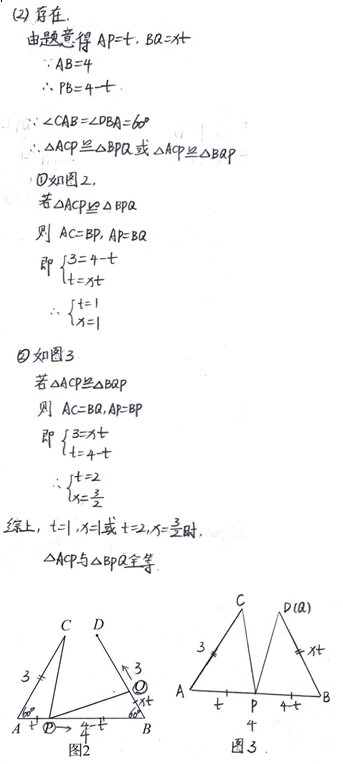 (2) 存在.
由题意得 AP=t. BQ=xt
∵ AB=4
∴ PB=4-t
∵ ∠CAB=∠DBA=60°
∴ △ACP≌△BPQ 或 △ACP≌△BQP
①如图2,
若△ACP≌△BPQ
则 AC=BP, AP=BQ
即 {3=4-t
t=xt
∴ {t=1
x=1
②如图3
若△ACP≌△BQP
则 AC=BQ, AP=BP
即 {3=xt
t=4-t
∴ {t=2
x=3/2
综上, t=1, x=1或 t=2, x=3/2时,
△ACP与△BPQ全等.
C D
3 3
Q
xt
60° 60°
A t P → 4-t B
4
图2
C D(Q)
3 xt
A t P 4-t B
4
图3